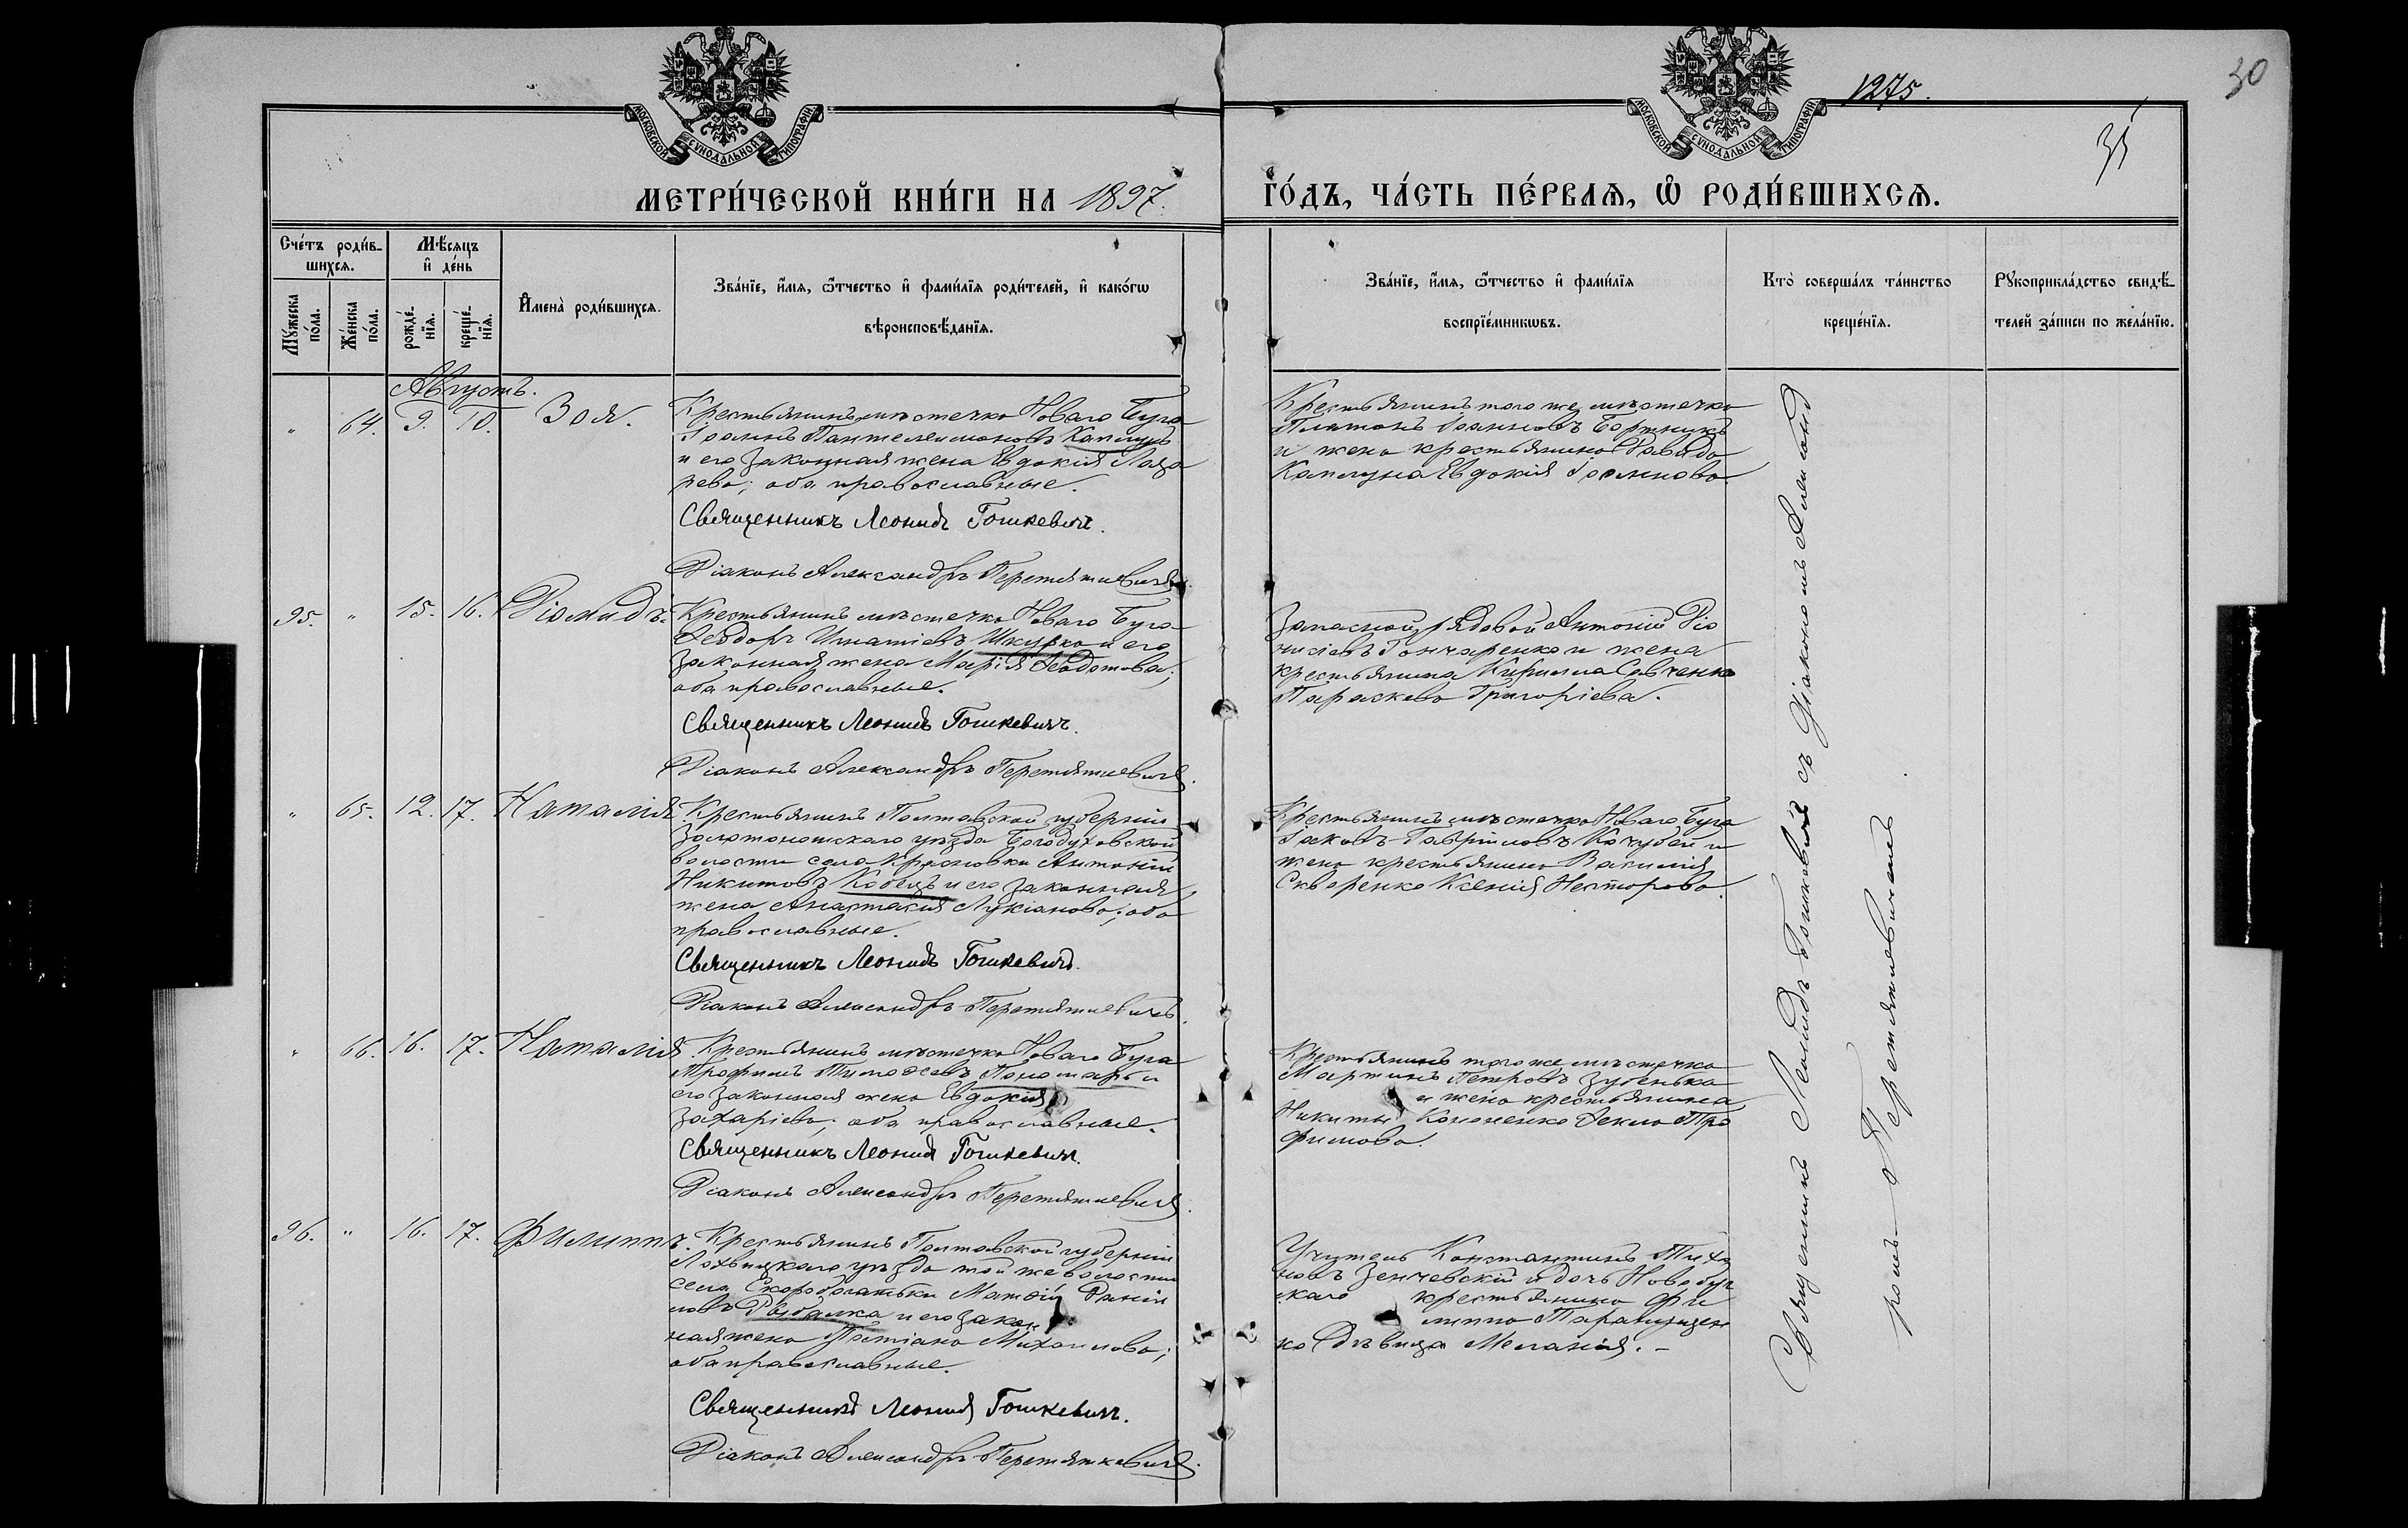 МОСКОВСКОЙ СУНОДАЛЬНОЙ ТИПОГРАФІИ
МОСКОВСКОЙ СУНОДАЛЬНОЙ ТИПОГРАФІИ
1275.
30
31
МЕТРИ́ЧЕСКОЙ КНИ́ГИ НА 1897.
ГО́ДЪ, ЧА́СТЬ ПЕ́РВАЯ, Ѡ РОДИ́ВШИХСЯ.
Сче́тъ роди́в-
шихся.
Мѣ́сяцъ
и де́нь
Му́жеска
по́ла.
Же́нска
по́ла.
рожде́-
нїя.
креще́-
нїя.
Имена̀ роди́вшихся.
Зва́нїе, и́мя, ѻ́тчество и фами́лїя роди́телей, и како́гѡ
вѣроисповѣ́данїя.
Зва́нїе, и́мя, ѻ́тчество и фами́лїя
воспрїе́мникѡвъ.
Кто̀ соверша́лъ та́инство
креще́нїя.
Рукоприкла́дство свидѣ́-
телей за́писи по жела́нїю.
Августъ.
" 64. 9. 10. Зоя.
Крестьянинъ мѣстечка Новаго Буга
Іоаннъ Пантелеимоновъ Каплунъ
и его законная жена Евдокія Лаза
рева; оба православные.
Священникъ Леонидъ Гошкевичъ.
Діаконъ Александръ Перетяткевичъ.
Крестьянинъ того же мѣстечка
Платонъ Іоанновъ Бортникъ
и жена крестьянина Давида
Каплуна Евдокія Іоаннова
95. " 15. 16. Діомидъ.
Крестьянинъ мѣстечка Новаго Буга
Ѳеодоръ Игнатіевъ Шкурко и его
законная жена Марія Ѳеодотова;
оба православные.
Священникъ Леонидъ Гошкевичъ.
Діаконъ Александръ Перетяткевичъ.
Запасной рядовой Антоній Діо
нисіевъ Гончаренко и жена
крестьянина Кирилла Савченко
Параскева Григоріева.
" 65. 12. 17. Наталія
Крестьянинъ Полтавской губерніи
Золотоношскаго уѣзда Богодуховской
волости села Красновки Антоній
Никитовъ Кобецъ и его законная
жена Анастасія Лукіанова; оба
православные.
Священникъ Леонидъ Гошкевичъ.
Діаконъ Александръ Перетяткевичъ.
Крестьянинъ мѣстечка Новаго Буга
Іаковъ Гавріиловъ Кочубей и
жена крестьянина Василія
Скворенко Ксенія Несторова.
" 66. 16. 17. Наталія
Крестьянинъ мѣстечка Новаго Буга
Трофимъ Тимоѳеевъ Пономарь и
его законная жена Евдокія
Захаріева; оба православные.
Священникъ Леонидъ Гошкевичъ.
Діаконъ Александръ Перетяткевичъ.
Крестьянинъ того же мѣстечка
Мартинъ Петровъ Зубенько
и жена крестьянина
Никиты Кононенко Ѳекла Тро
фимова.
96. " 16. 17. Филиппъ.
Крестьянинъ Полтавской губерніи
Лохвицкаго уѣзда той же волости
села Скоробогатьки Матѳій Даніи
ловъ Рыбалка и его закон
ная жена Татіана Михаилова;
оба православные.
Священникъ Леонидъ Гошкевичъ.
Діаконъ Александръ Перетяткевичъ.
Учитель Константинъ Тихо
новъ Зенчевскій и дочь Новобуг
скаго крестьянина Фи
липпа
ко дѣвица Меланія. -
Священникъ Леонидъ Гошкевичъ съ Діакономъ Александ
ромъ Перетяткевичемъ